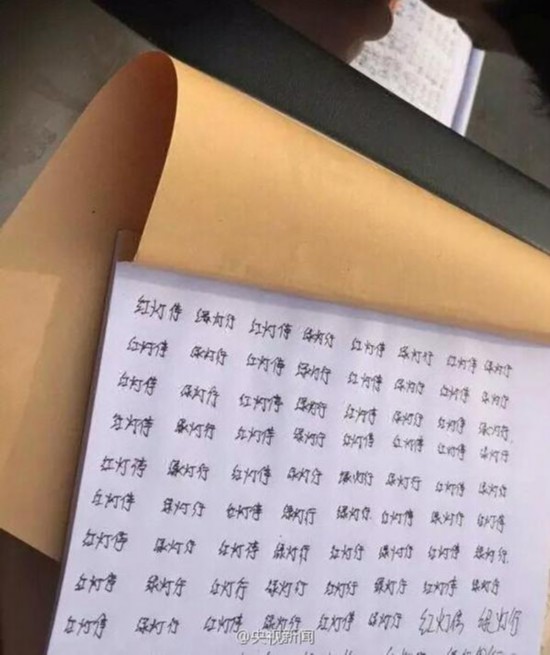 红灯停 绿灯行 红灯停 绿灯行 红灯停 绿灯行 红灯停 绿灯行
红灯停 绿灯行 红灯停 绿灯行 红灯停 绿灯行 红灯停 绿灯行
红灯停 绿灯行 红灯停 绿灯行 红灯停 绿灯行 红灯停 绿灯行
红灯停 绿灯行 红灯停 绿灯行 红灯停 红灯停 红灯停 绿灯行
红灯停 绿灯行 红灯停 绿灯行 绿灯行 绿灯行 红灯停 红灯停
红灯停 绿灯行 红灯停 绿灯行 绿灯行 红灯停 绿灯行 红灯停
红灯停 绿灯行 红灯停 绿灯行 红灯行 红灯行 红灯停 绿灯行
红灯停 绿灯行 红灯行 绿灯行 红灯行 红灯停 红灯停 绿灯行
红灯停 绿灯行 红灯停 绿灯行 红灯停 绿灯行 红灯停 绿灯行
@央视新闻